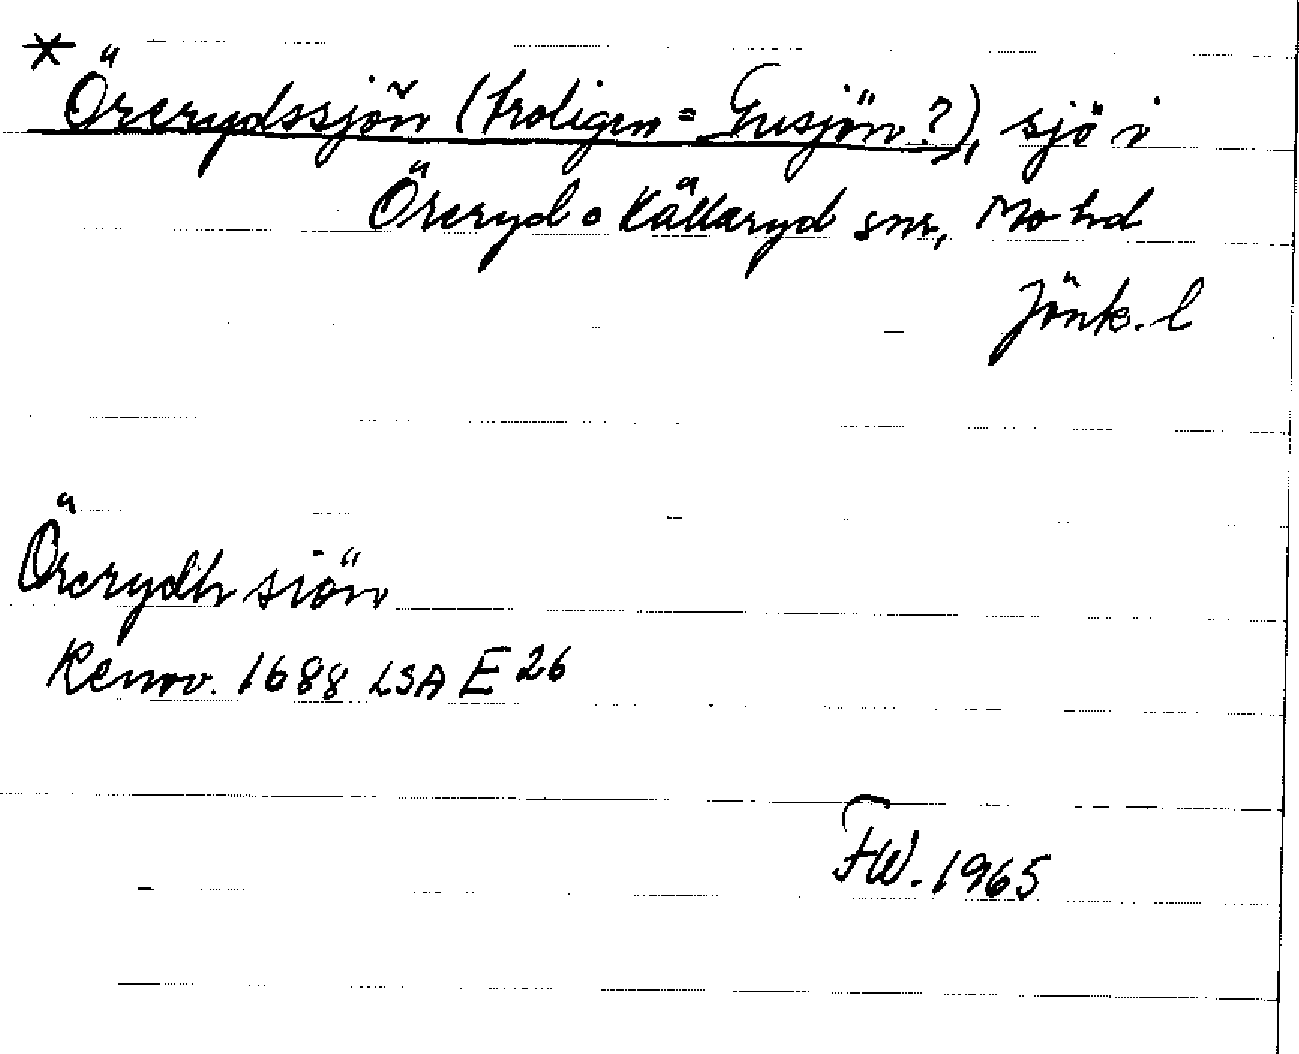 * Örerydssjön (troligen = Gusjön?), sjö i
Öreryd o Källeryd snr, Mo hd
Jönk. l
Örerydh siön
Renov. 1688 LSA E 26
FW. 1965